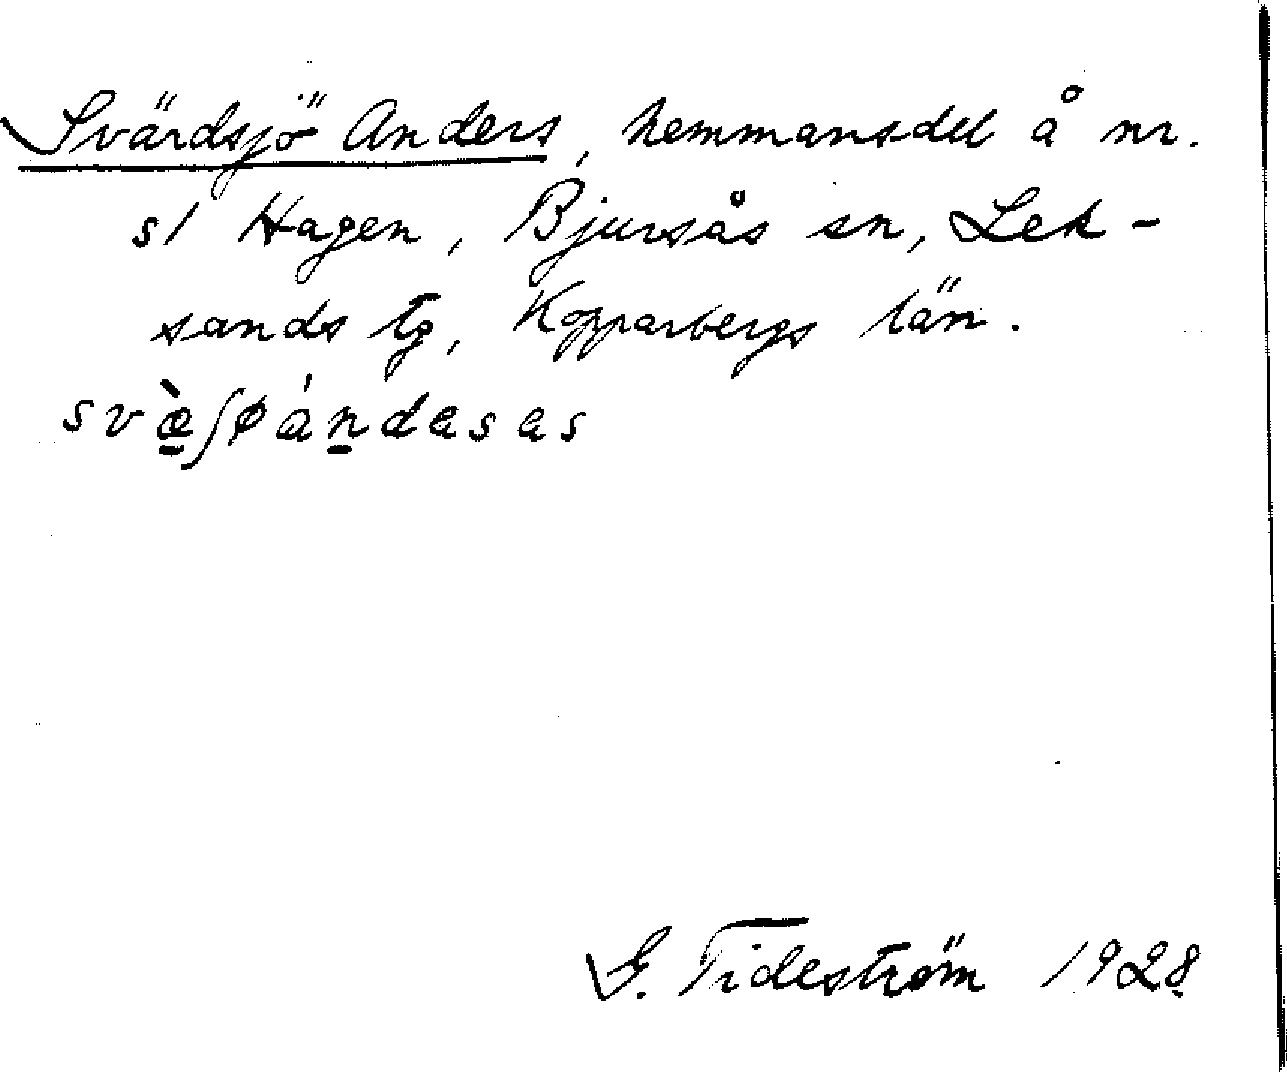 Svärdsjö Anders, hemmansdel å nr.
s1 Hagen, Bjursås sn, Lek-
sands tg, Kopparbergs län.
svæ̠̀ʃøán̠dəsəs
G. Tideström 1928